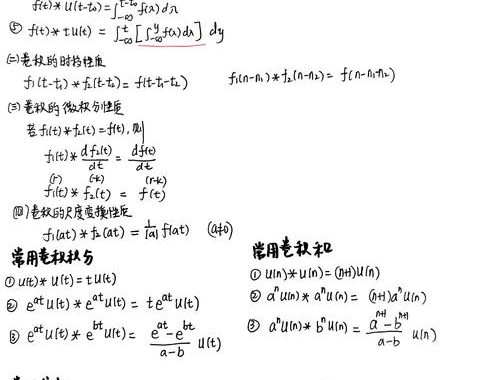 f(t)*u(t-t₀)=∫_{-∞}^{t-t₀} f(λ)dλ
⑤ f(t)*tu(t)=∫_{-∞}^{t}[∫_{-∞}^{y}f(λ)dλ]dy
(二)卷积的时移性质
f₁(t-t₁)*f₂(t-t₂)=f(t-t₁-t₂) f₁(n-n₁)*f₂(n-n₂)=f(n-n₁-n₂)
(三)卷积的微积分性质
若f₁(t)*f₂(t)=f(t),则
f₁(t)*df₂(t)/dt=df(t)/dt
f₁^{(r)}(t)*f₂^{(-k)}(t)=f^{(r-k)}(t)
(四)卷积的尺度变换性质
f₁(at)*f₂(at)=1/|a| f(at) (a≠0)
常用卷积积分
① u(t)*u(t)=tu(t)
② e^{at}u(t)*e^{at}u(t)=te^{at}u(t)
③ e^{at}u(t)*e^{bt}u(t)=(e^{at}-e^{bt})/(a-b) u(t)
常用卷积和
① u(n)*u(n)=(n+1)u(n)
② aⁿu(n)*aⁿu(n)=(n+1)aⁿu(n)
③ aⁿu(n)*bⁿu(n)=(a^{n+1}-b^{n+1})/(a-b) u(n)